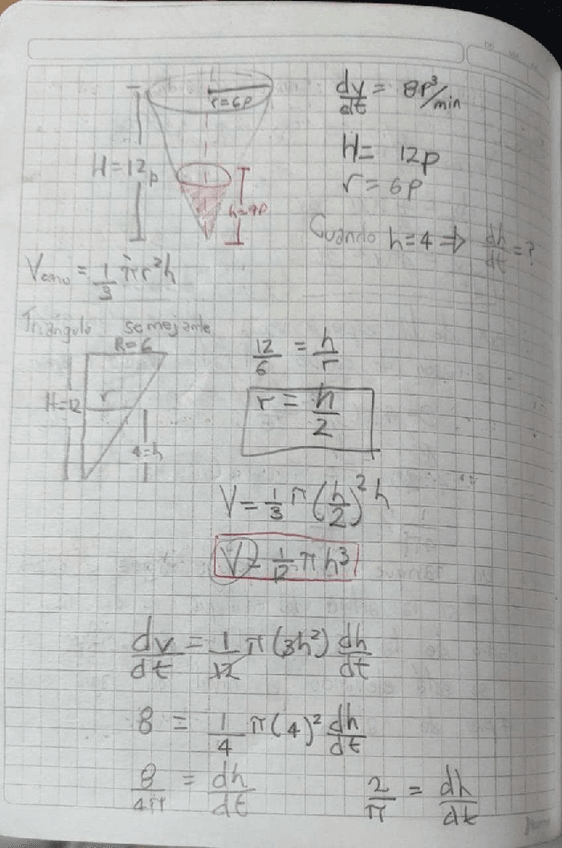 r=6p
H=12p
h=4p
dv/dt = 8p³/min
H= 12p
r= 6p
Cuando h=4 ⇒ dh/dt = ?
Vcono = 1/3 πr²h
Triángulo semejante
R=6
H=12
r
4=h
12/6 = h/r
r = h/2
V = 1/3 π (h/2)² h
V = 1/12 π h³
dv/dt = 1/12 π (3h²) dh/dt
8 = 1/4 π (4)² dh/dt
8/4π = dh/dt
2/π = dh/dt